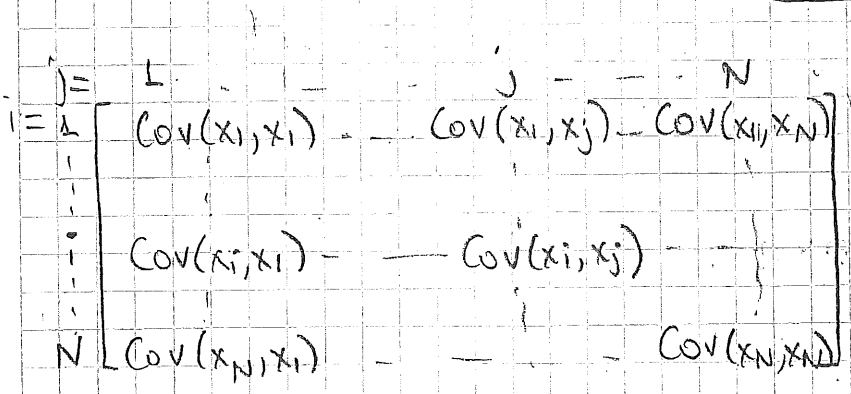 j= 1 . - - . j - - . N
i= 1 [ Cov(x1,x1) - - Cov(x1,xj) - Cov(x1,xN) ]
i Cov(xi,x1) - - Cov(xi,xj) - -
N Cov(xN,x1) - - - - Cov(xN,xN)